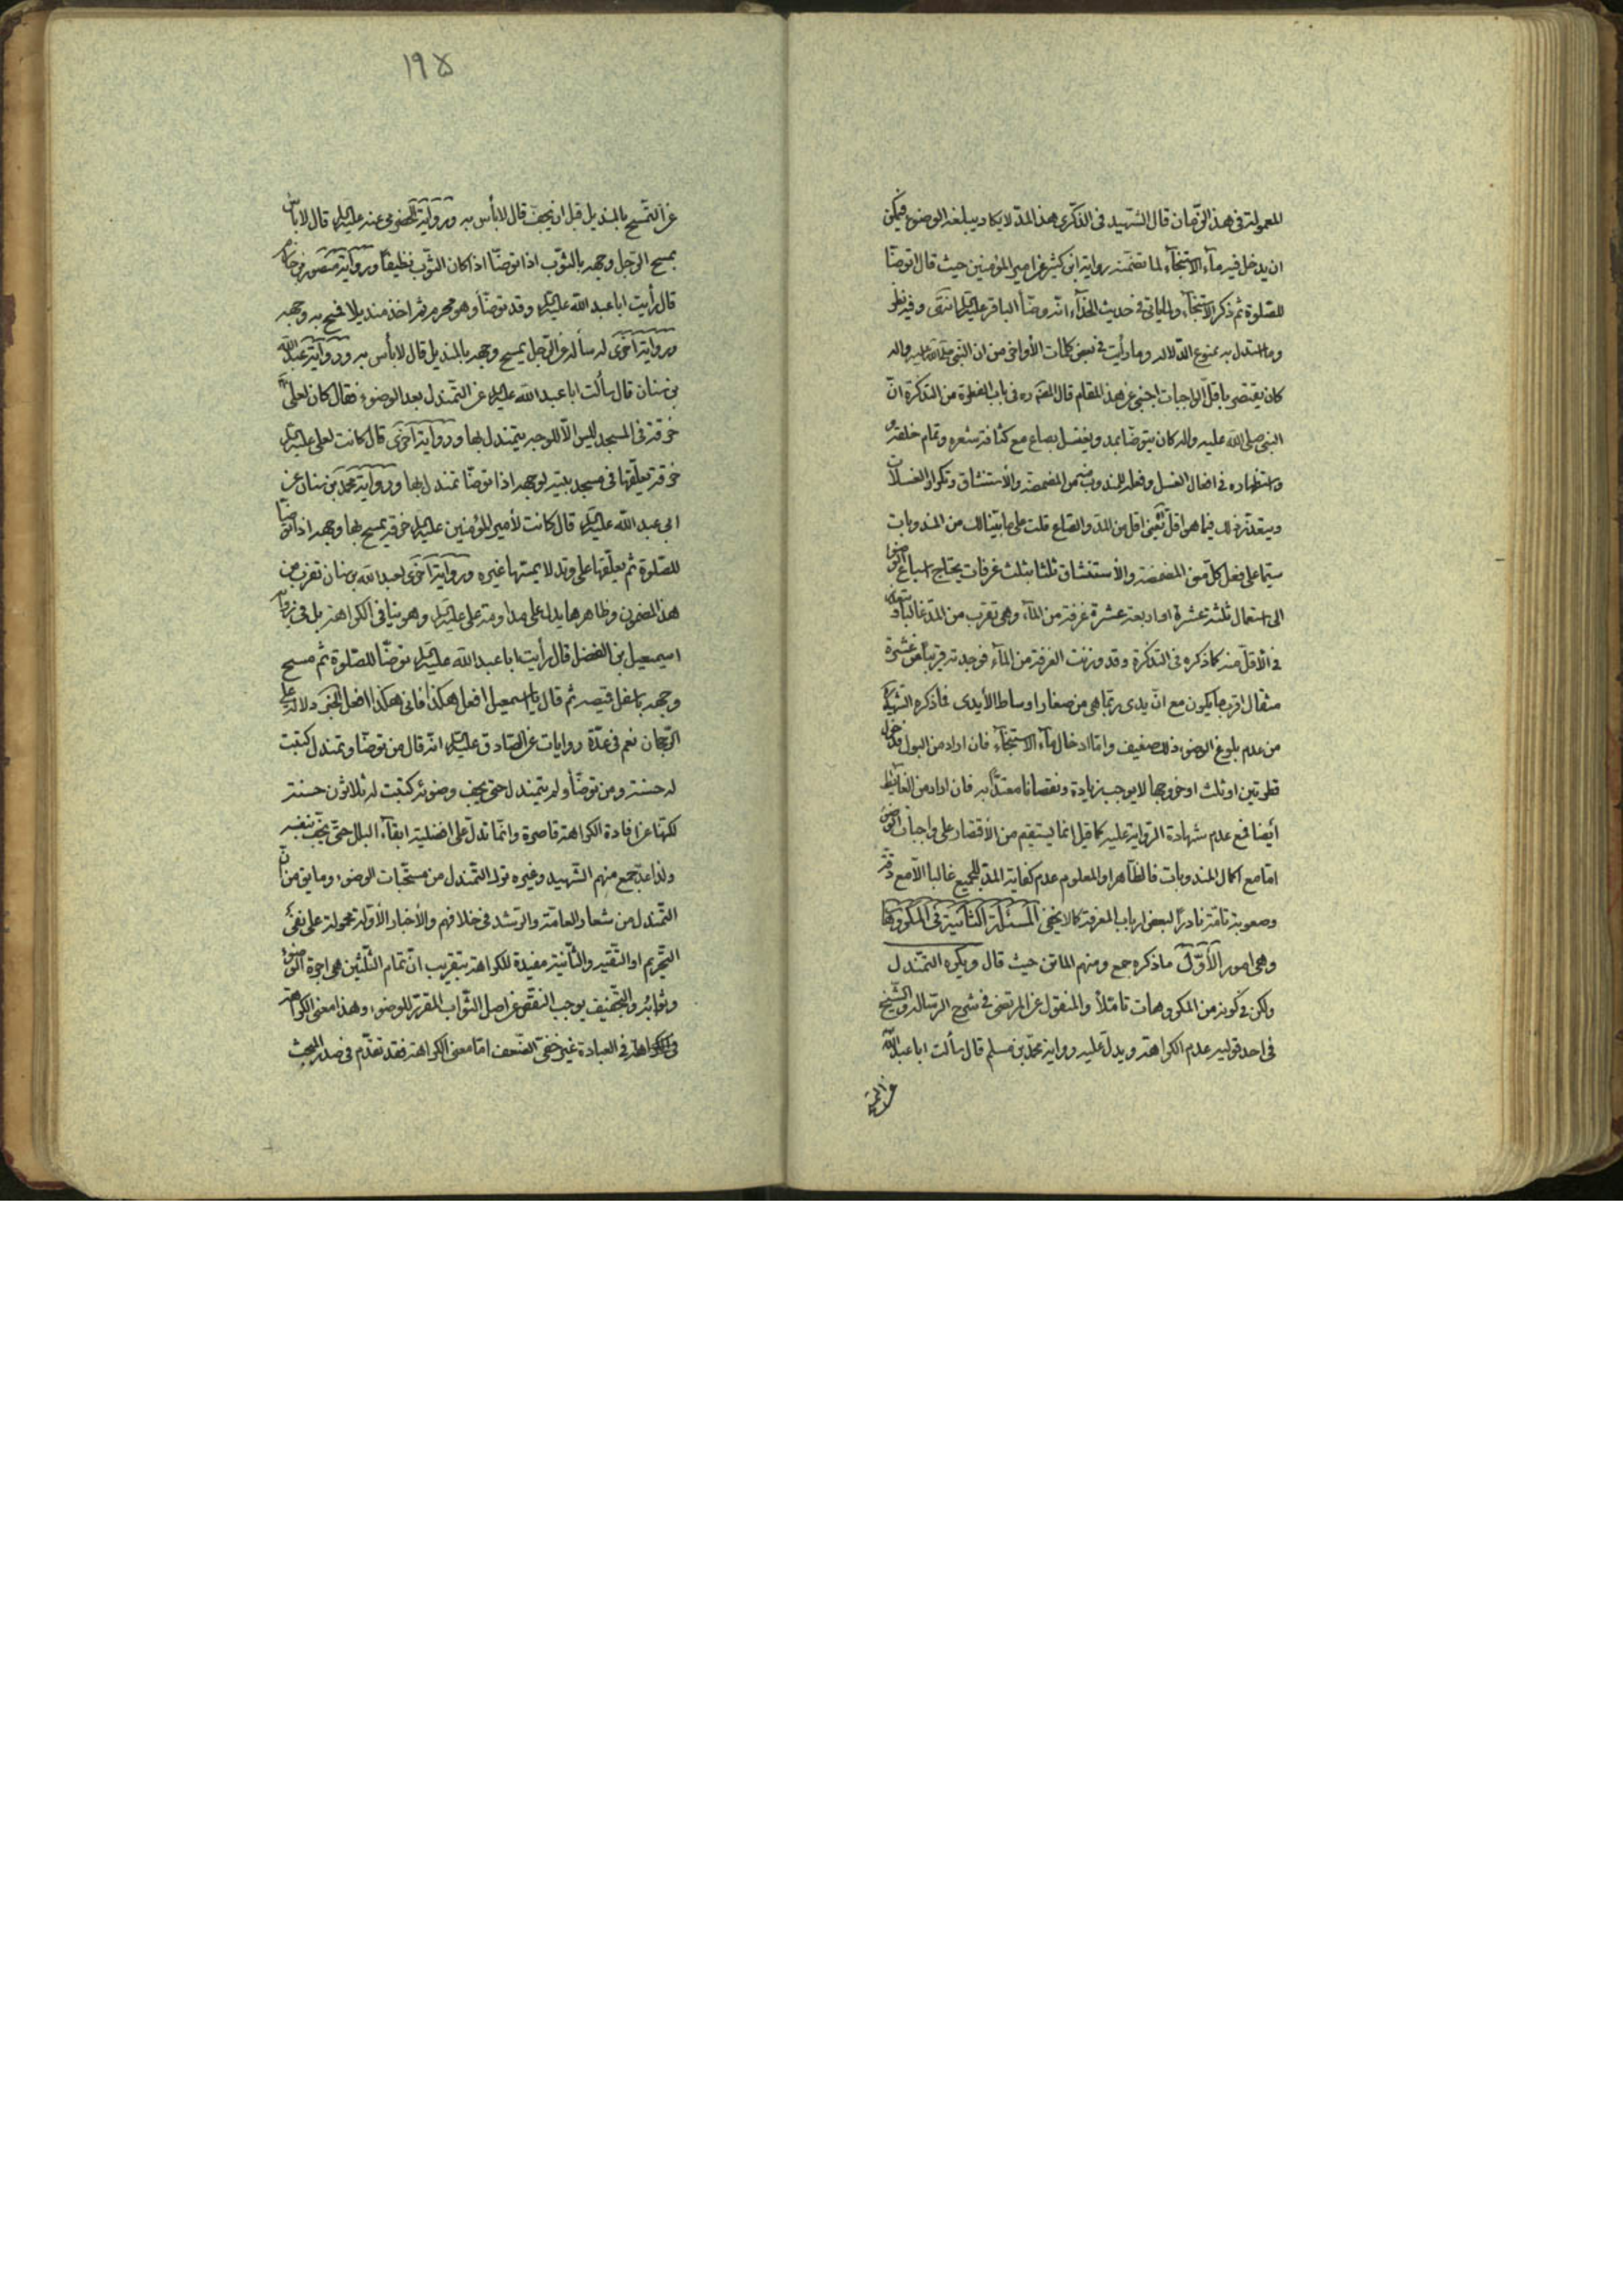 المعمولة فى هذا الزمان قال الشهيد فى الذكرى هذا المد لا يكاد يبلغه الوضوء فيمكن
ان يدخل فيه ماء الاستنجاء لما تضمنه رواية ابن كثير عن امير المؤمنين حيث قال اتوضأ
للصلوة ثم ذكر الاستنجاء ولما ياتى فى حديث الحذاء انه وضأ الباقر عليه السلم انتهى وفيه نظر
وما استدل به ممنوع الدلالة وما رأيت فى بعض كلمات الأواخر من ان النبى صلى الله عليه واله
كان يقتصر باقل الواجبات اجنبى عن هذا المقام قال فى باب الفطرة من التذكرة انّ
النبى صلى الله عليه واله كان يتوضأ بمد ويغتسل بصاع مع كثافة شعره وتمام خلقه و
واستظهاره فى افعال الغسل وفعله المندوب فيه من المضمضة والأستنشاق وتكرار الغسلات
ويبعد ذلك فيما هو اقل يعنى اقل من المد والصاع قلت على ما بينا لك من المندوبات
سيما على فعل كل من المضمضة والأستنشاق ثلثا بثلث غرفات يحتاج اسباغ الوضوء
الى استعمال ثلثة عشرة او اربعة عشرة غرفة من الماء وهى تقرب من المد غالبا
فى الأقل منه كما ذكره فى التذكرة وقد وزنت الغرفة من الماء فوجدته قريبا من عشرة
مثقال اقرب ما يكون مع ان يدى ربما هى من صغار اوساط الأيدى فما ذكره الشهيد
من عدم بلوغ الوضوء ذلك ضعيف واما ادخال ماء الاستنجاء فان اراد من البول فدخول
قطرتين او ثلث او خروجها لا يوجب زيادة ونقصانا معتدا به فان اراد من الغائط
أيضا فمع عدم شهادة الرواية عليه كما قيل انما يستقيم من الأقتصار على واجبات الوضوء
امّا مع اكمال المندوبات فالظاهر او المعلوم عدم كفاية المد للجميع غالبا الا مع دقة
وصعوبة تامّة نادرًا لبعض ارباب المعرفة كما لا يخفى المسئلة الثانية فى المكروهات
وهى امور الأوّل ما ذكره جمع ومنهم الماتن حيث قال ويكره التمندل
ولكن فى كونه من المكروهات تامّلاً والمنقول عن المرتضى فى شرح الرسالة والشيخ
فى احد قوليه عدم الكراهة ويدل عليه رواية محمد بن مسلم قال سألت ابا عبد الله
عن التمسح
١٩٥
عن التمسّح بالمنديل قبل ان يجفّ قال لا بأس به ورواية الحضرمى عنه عليه السلم قال لا باس
بمسح الرجل وجهه بالثوب اذا توضأ اذا كان الثوب نظيفا ورواية منصور بن حازم
قال رأيت ابا عبد الله عليه السلم وقد توضأ وهو محرم ثم اخذ منديلا فمسح به وجهه
ورواية اخرى له سأله عن الرجل يمسح وجهه بالمنديل قال لا بأس به ورواية عبد الله
بن سنان قال سألت ابا عبد الله عليه السلم عن التمندل بعد الوضوء فقال كان لعلى
خرقة فى المسجد ليس الا للوجه يتمندل بها ورواية اخرى قال كانت لعلى عليه السلم
خرقة يعلّقها فى مسجد بيته لوجهه اذا توضأ تمندل بها ورواية محمد بن سنان عن
ابى عبد الله عليه السلم قال كانت لأمير المؤمنين عليه السلم خرقة يمسح بها وجهه اذا توضأ
للصلوة ثم يعلّقها على وتد لا يمسها غيره ورواية اخرى لعبد الله بن سنان تقرب من
هذا المضمون وظاهرها يدل على مداومة على عليه السلم وهو ينافى الكراهة بل فى رواية
اسمعيل بن الفضل قال رأيت ابا عبد الله عليه السلم توضأ للصلوة ثم مسح
وجهه باسفل قميصه ثم قال يا اسمعيل افعل هكذا فانى هكذا افعل دلالة على
الرّجحان نعم فى عدّة روايات عن الصادق عليه السلم انّه قال من توضأ وتمندل كتبت
له حسنة ومن توضأ ولم يتمندل حتى يجف وضوئه كتبت له ثلاثون حسنة
لكنّها عن افادة الكراهة قاصرة وانّما تدلّ على افضلية ابقاء البلل حتى يجف بنفسه
ولذا عدّ جمع منهم الشهيد وغيره ترك التمندل من مستحبّات الوضوء وما يق من ان
التمندل من شعار العامّة والرشد فى خلافهم والأخبار الأوّلة محمولة على نفى
التحريم او التقية والثّانية مفيدة للكراهة بتقريب انّ تمام الثّلثين هى اجرة الوضوء
وثوابه والتّجفيف يوجب النقص عن اصل الثواب المقرّر للوضوء وهذا معنى الكراهة
فى العبادة غير خفىّ الضّعف امّا معنى الكراهة فقد تقدّم فى صدر المبحث